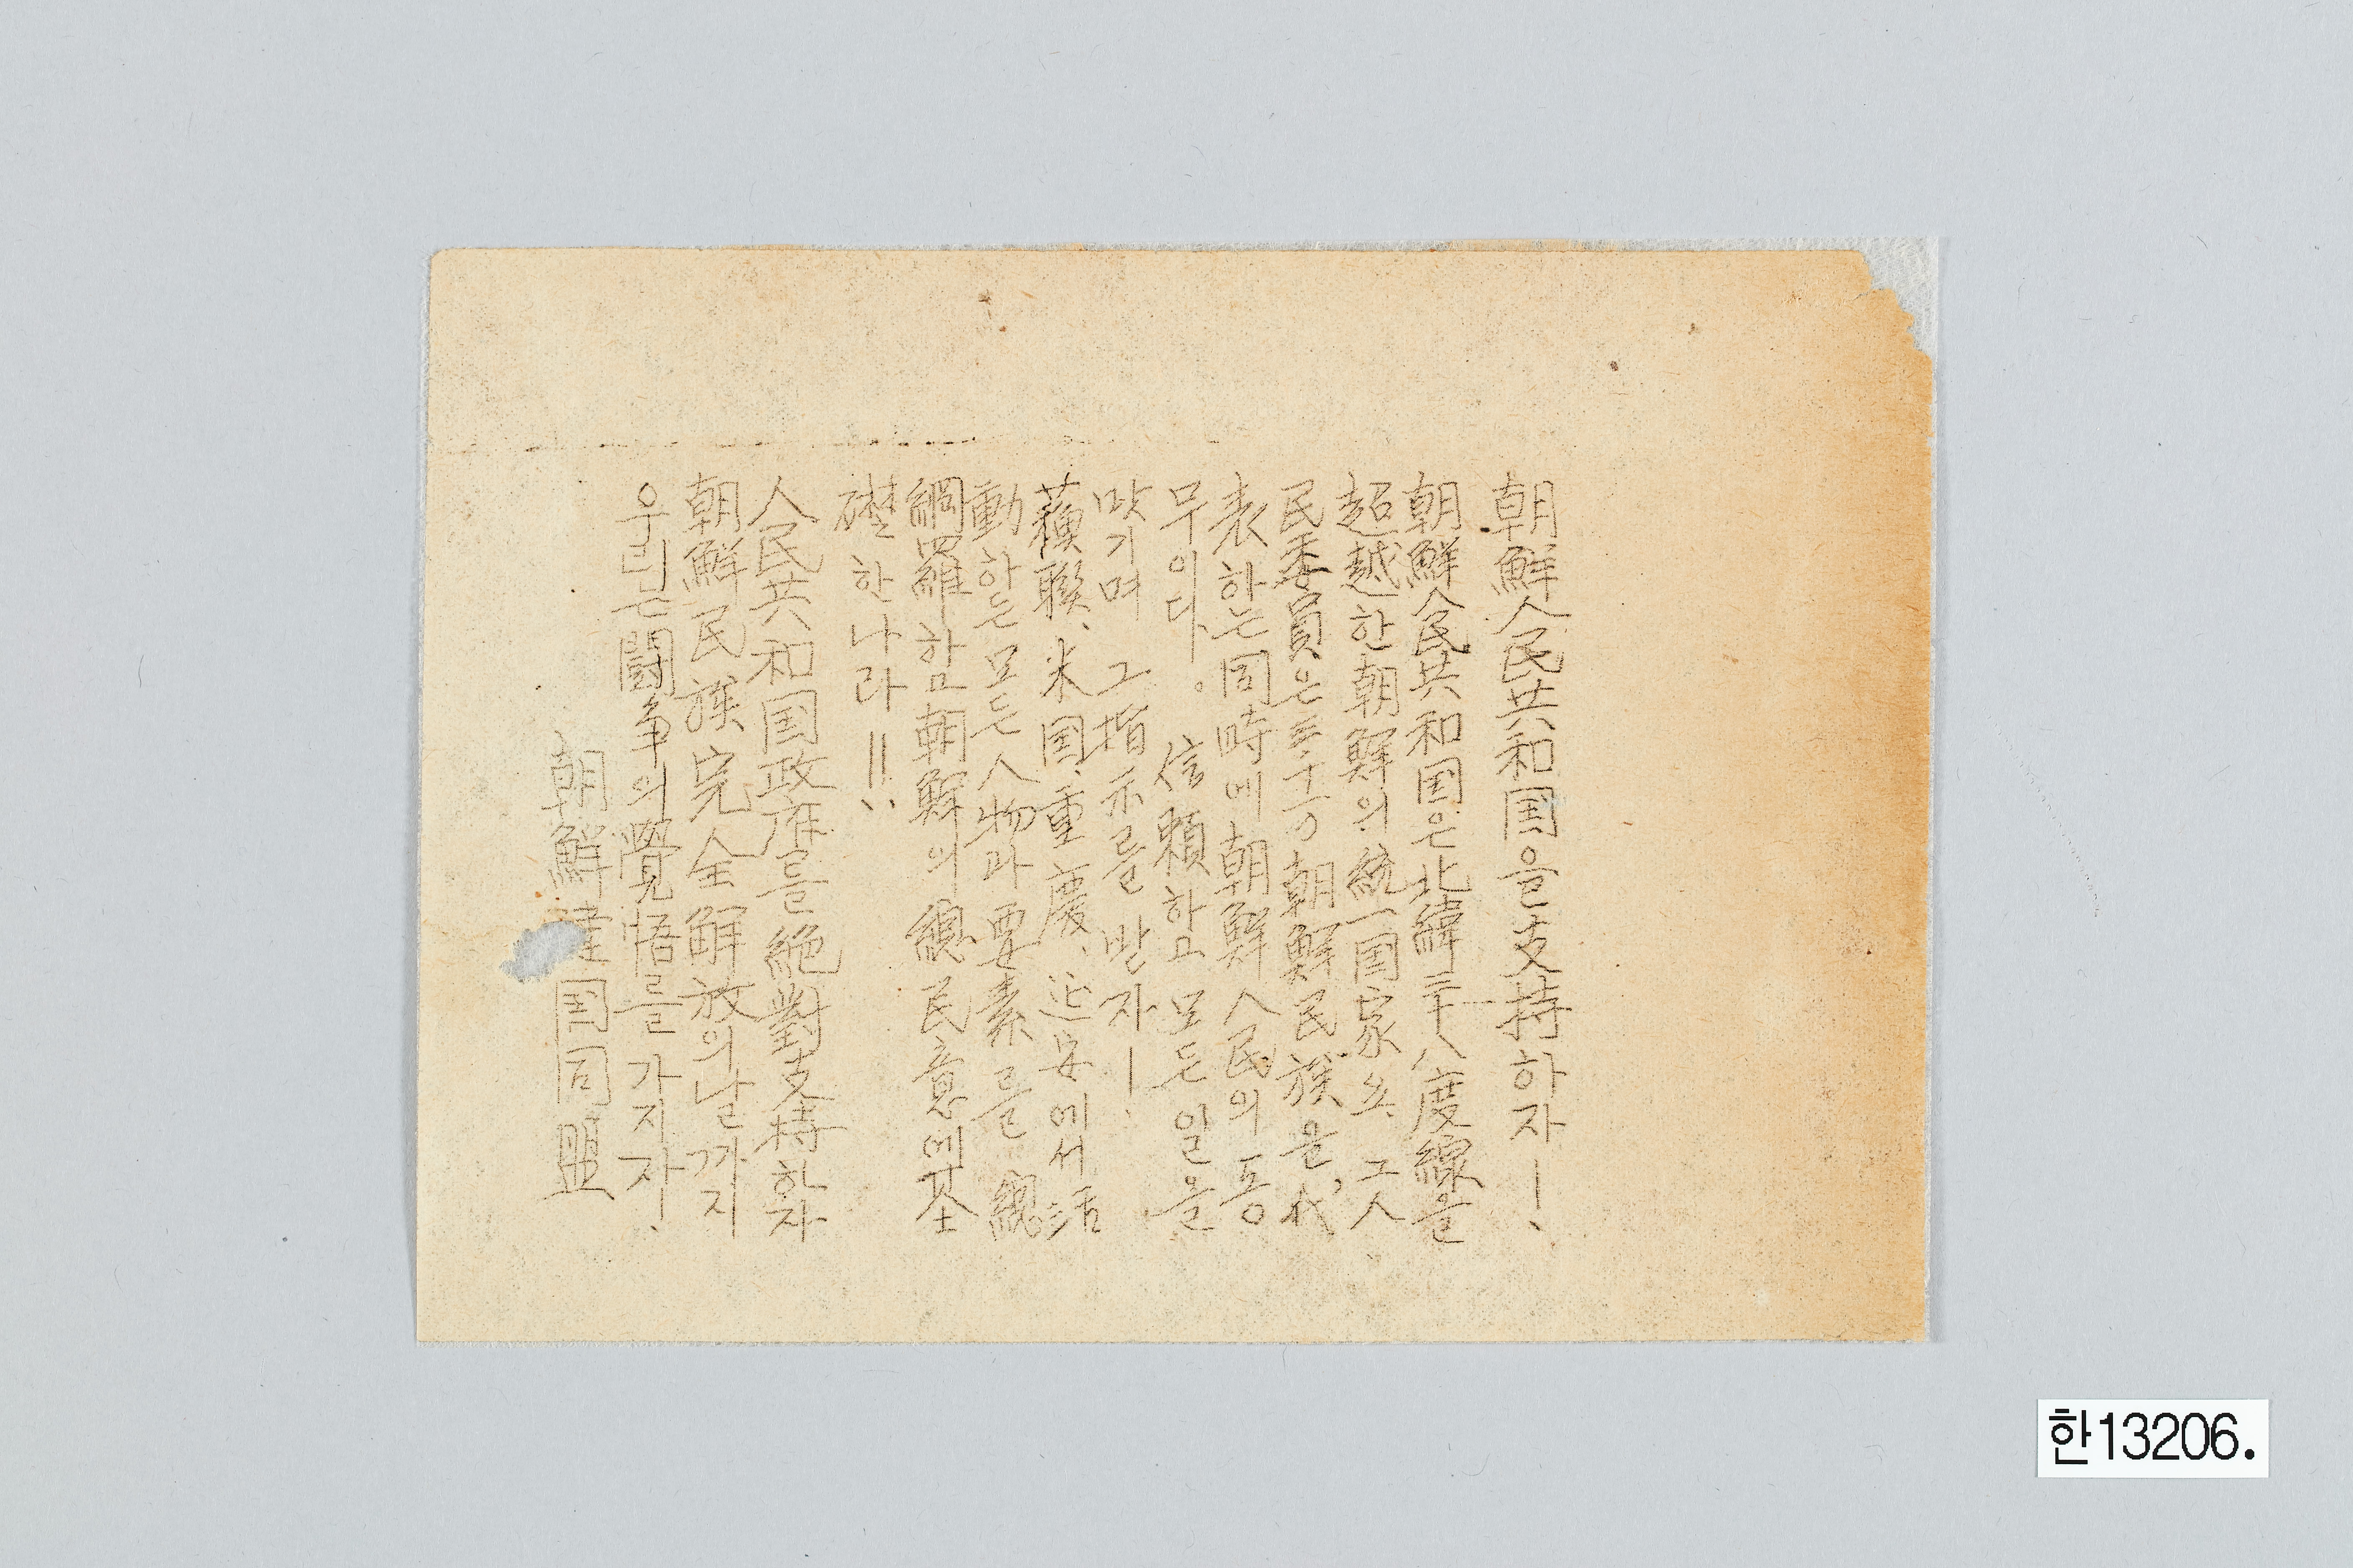 朝鮮人民共和国을支持하자!
朝鮮人民共和国은北緯三十八度線을
超越한朝鮮의統一国家요. 그人
民委員은三千万朝鮮民族을, 代
表하는同時에朝鮮人民의동
무이다. 信賴하고모든일을
맛기며 그指示를받자!
蘇聯、米国、重慶、延安에서活
動하는모든人物과要素를總
網羅하고朝鮮의總民意에基
礎한나라!!
人民共和国政府를絶對支持하자
朝鮮民族完全解放의날까지
우리는鬪争의覺悟를가지자!
朝鮮建国同盟
한13206.